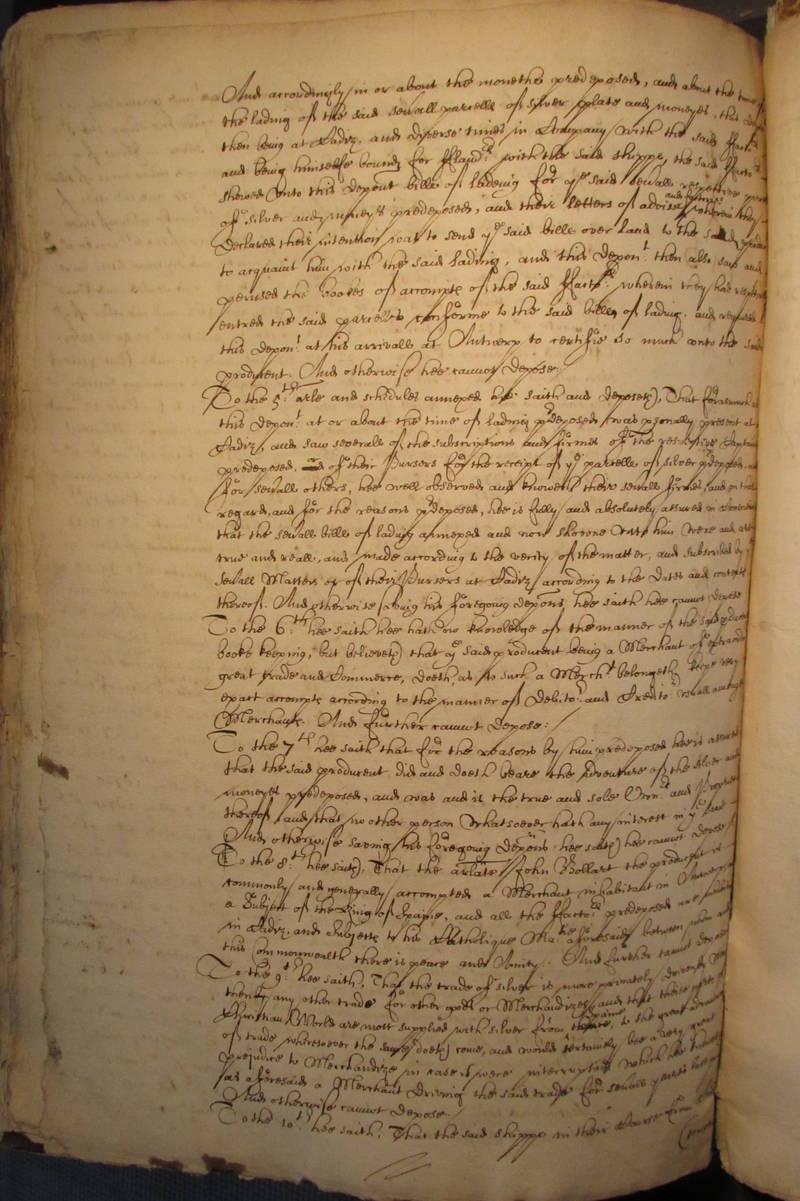 And accordingly in or about the moneths predeposed, and about the time of
the lading of the said severall parcells of silver plate and moneyes, this
then being at Cadiz, and dyverse times in Company with the said ffactors
and being himselfe bound for ffland:rs with the said shipps, the said ffactors
shewed unto this deponent bills of ladeing for ye said severall respective
of silver and moneys predeposed, and their letters of advise and wherein they
declared their intention was to send ye said bills over land to the said
to acquaint him with the said lading, and this depon:t then also saw and
perused the bookes of accompts of the said ffactors wherein they had
entred the said parcells conforme to the said bills of lading, and
this depon:t at his arrivall at Antwerp to certifie so much unto the said
producent. And otherwise hee cannot depose.
To the 5:th arle and schedules annexed hee saith and deposeth, That forasmuch as
this depon:t at or about the time of lading predeposed was psonally present at
Cadiz, and saw severall of the subscriptions and firmes of the respective
predeposed, of their Pursers for the receipt of ye parcells of silver predeposed,
for severall others, hee well observed and knoweth their severall firmes, and in that
regard, and for the reasons predeposed, hee is fully and absolutely assured in
that the severall bills of lading annexed and now showne unto him were and are
true and reall, and made according to the verity of the matter, and subscribed by
severall Masters or of their Pursers at Cadiz according to the dates and contents
thereof. And otherwise saving his foregoing depons hee saith hee cannot depose
To the 6:th hee saith hee hath no knowledge of the manner of the said producents
books keeping, but beleeveth that ye said producent being a Merchant of
great trade and Commerce, doeth, as to such a Merch:t belongeth keepe very
exact accompts according to the manner of Debito:r and Credito:r usuall amongst
Merchants. And further cannot depose:/
To the 7:th hee saith that for the reasons by him predeposed hee is assured
that the said producent did and doeth beare the adventure of the silver and
moneyes predeposed, and was and is the true and sole Owner and Proprietor
thereof, and that no other person whatsoever hath any interest in ye same
And otherwise saving his foregoing depons hee saith hee cannot depose
To the 8:th hee saith, That the arlate John Bollart the producent is
commonly and generally accompted a Merchant inhabitant in Antwerp
a Subject of the King of Spaine, and all the ffactors predeposed are
in Cadiz, and Subjects to his Catholique Ma:tie aforesaid, between whom and
this Commonwealth there is peace and Amity. And further cannot depose
To the 9:th hee saith, That the trade of silver is more privately driven
then any other trade for other goods or Merchandizes, and that these parts of
Christian World are most supplied with silver from Spaine, to the great
of trade wheresoever the same doeth come, and would certainely bee a very great
prejudice to Merchandize in case it were interrupted which hee
as aforesaid a Merchant driving the said trade for severall yeares
And otherwise cannot depose./
To the 10:th hee saith, That the said shipps in their course from